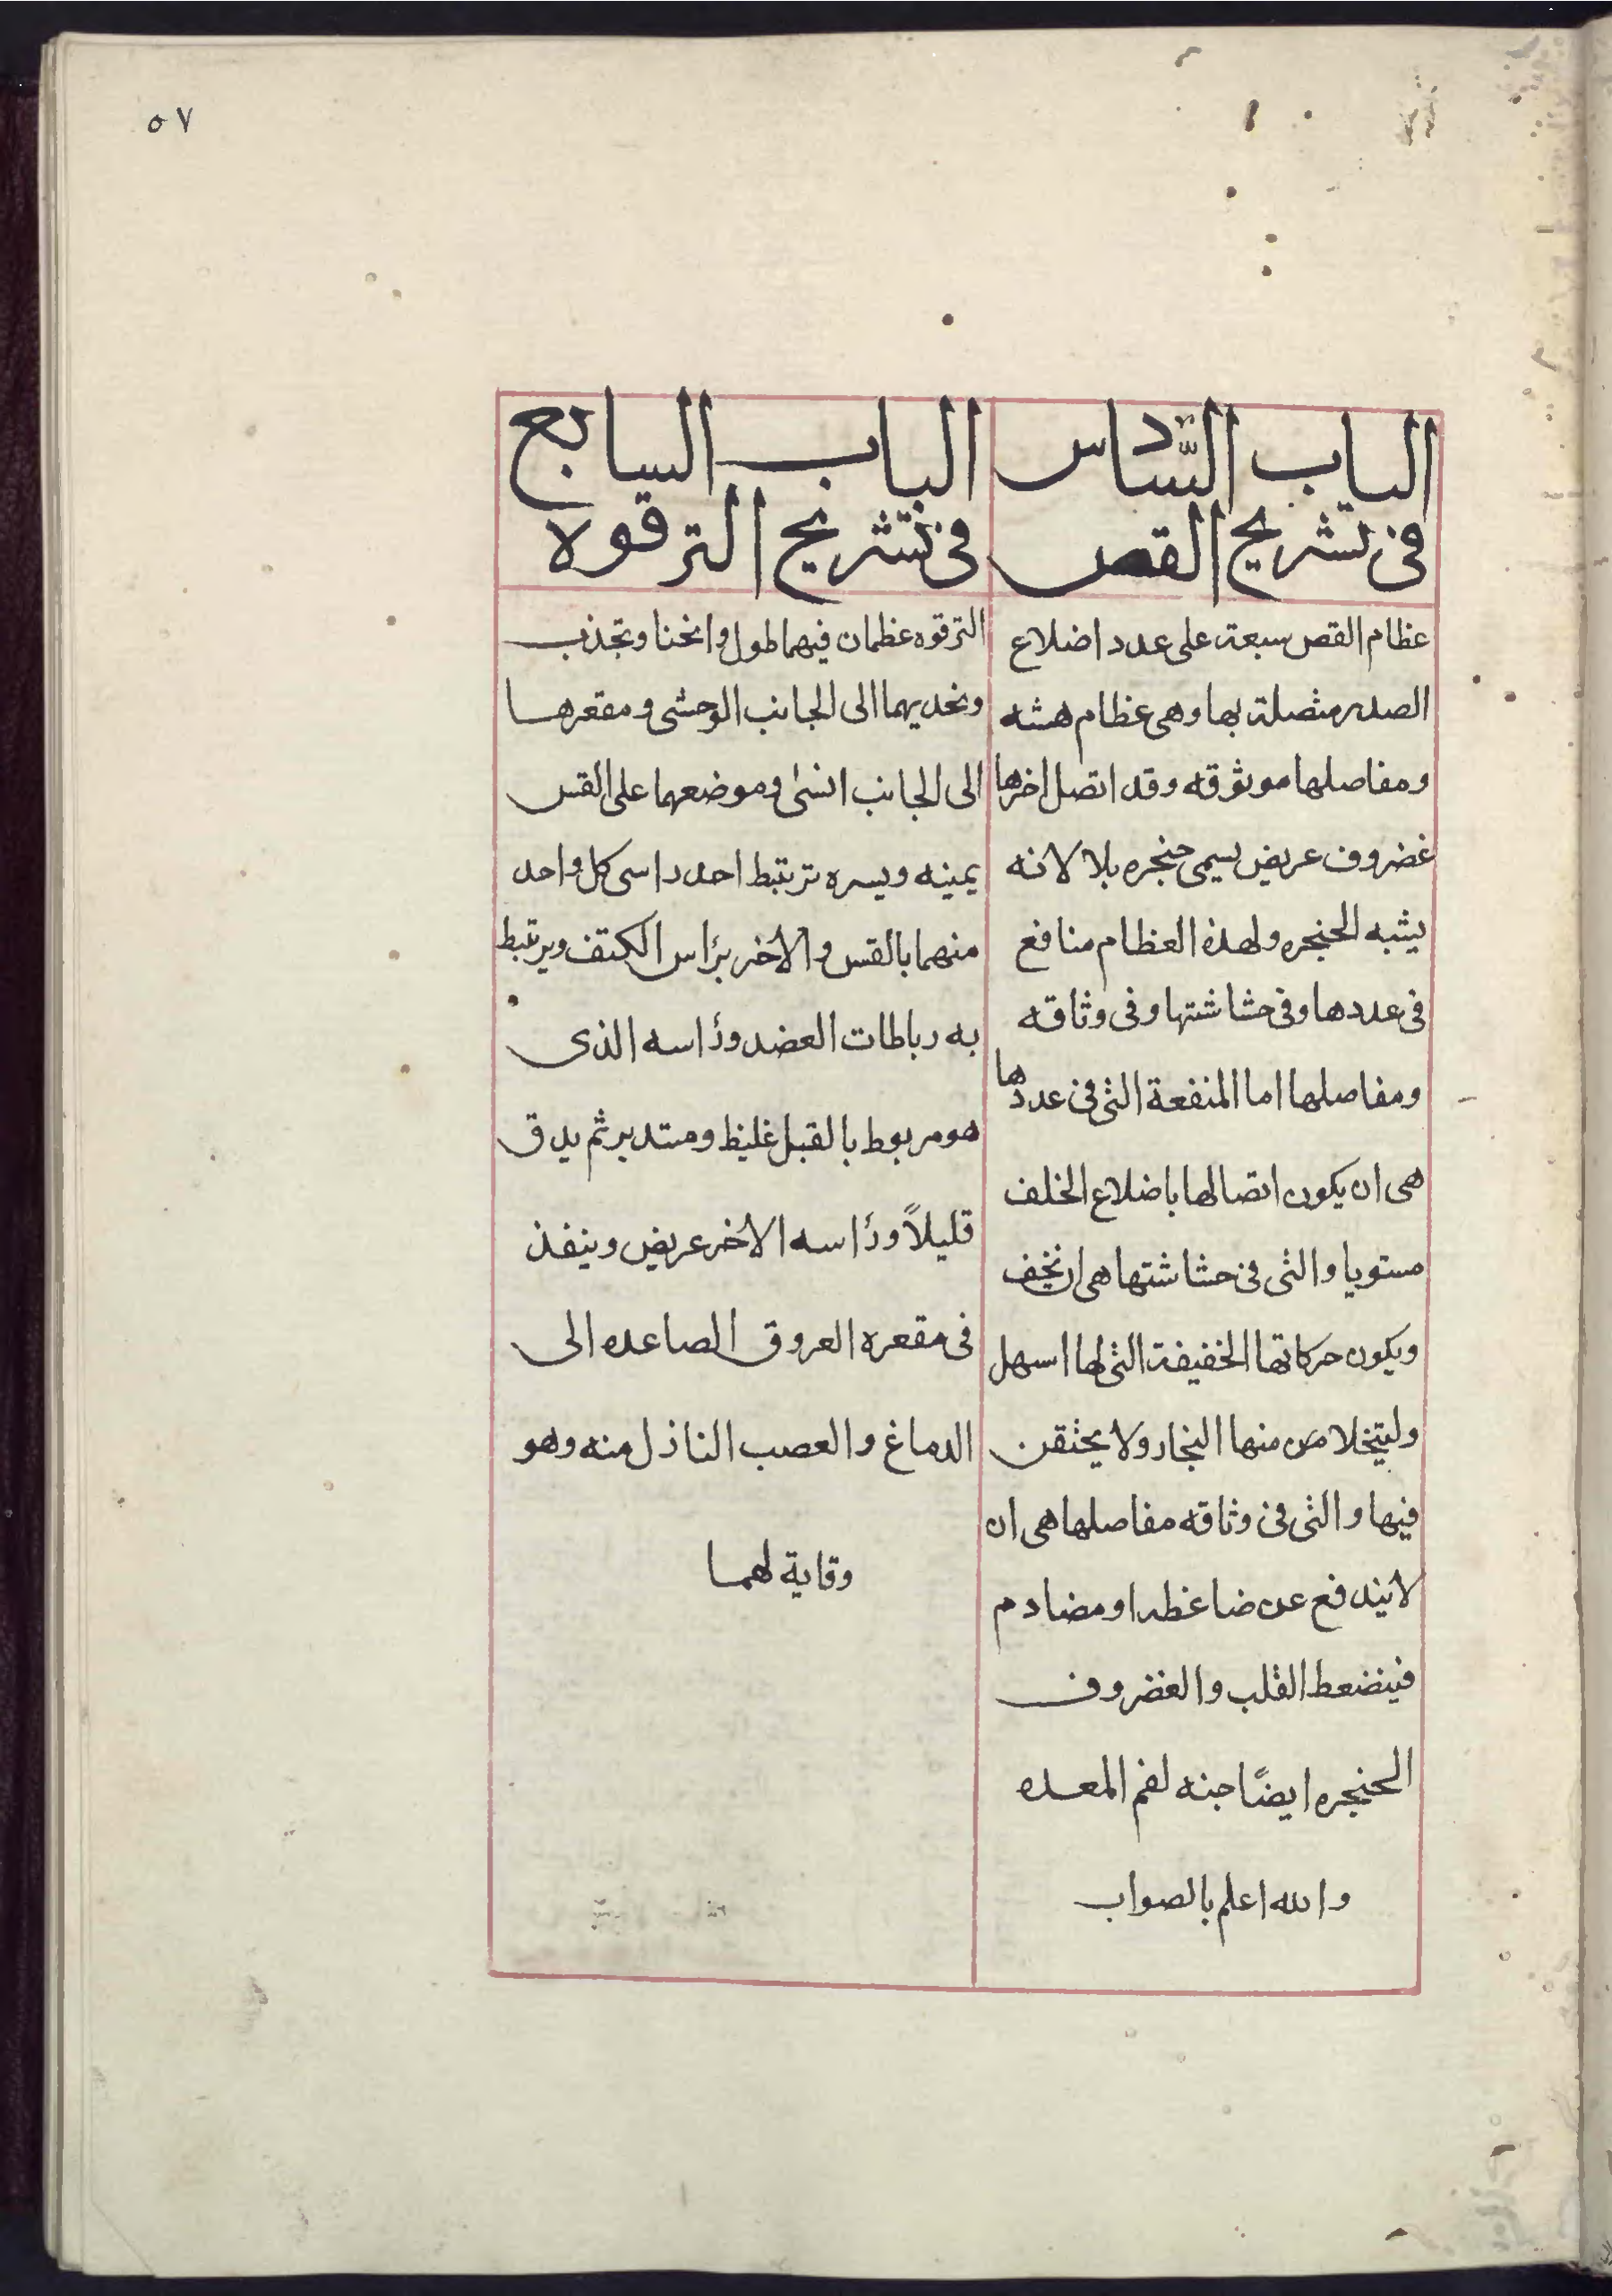 ٥٧
الباب السّادس
فى تشريح القص
عظام القص سبعة على عدد اضلاع
الصدر متصلة بها وهى عظام هشه
ومفاصلها موثوقه وقد اتصل اخرها
غضروف عريض يسمى حنجره بلا لانه
يشبه الحنجره ولهذه العظام منافع
فى عددها وفى حشاشتها وفى وثاقه
ومفاصلها اما المنفعة التى فى عددها
هى ان يكون اتصالها باضلاع الخلف
مستويا والتى فى حشاشتها هى ان تخف
ويكون حركاتها الخفيفة التى لها اسهل
وليتخلا من منها البخار ولا يحتقن
فيها والتى فى وثاقه مفاصلها هى ان
لا يندفع عن ضاغطه او مضادم
فينضعط القلب والغضروف
الحنجره ايضًا جنه لفم المعده
والله اعلم بالصواب
الباب السابع
فى تشريح الترقوة
الترقوه عظمان فيهما طول وانحنا وتجذب
وتحديهما الى الجانب الوحشى ومقعرها
الى الجانب انسى وموضعهما على القس
يمينه ويسره ترتبط احد راسى كل واحد
منهما بالقس والاخر براس الكتف ويرتبط
به رباطات العضد وراسه الذى
هو مربوط بالقبل غليظ ومستدير ثم يدق
قليلاً وراسه الاخر عريض وينفذ
فى مقعره العروق الصاعده الى
الدماغ والعصب الناذل منه وهو
وقاية لهما